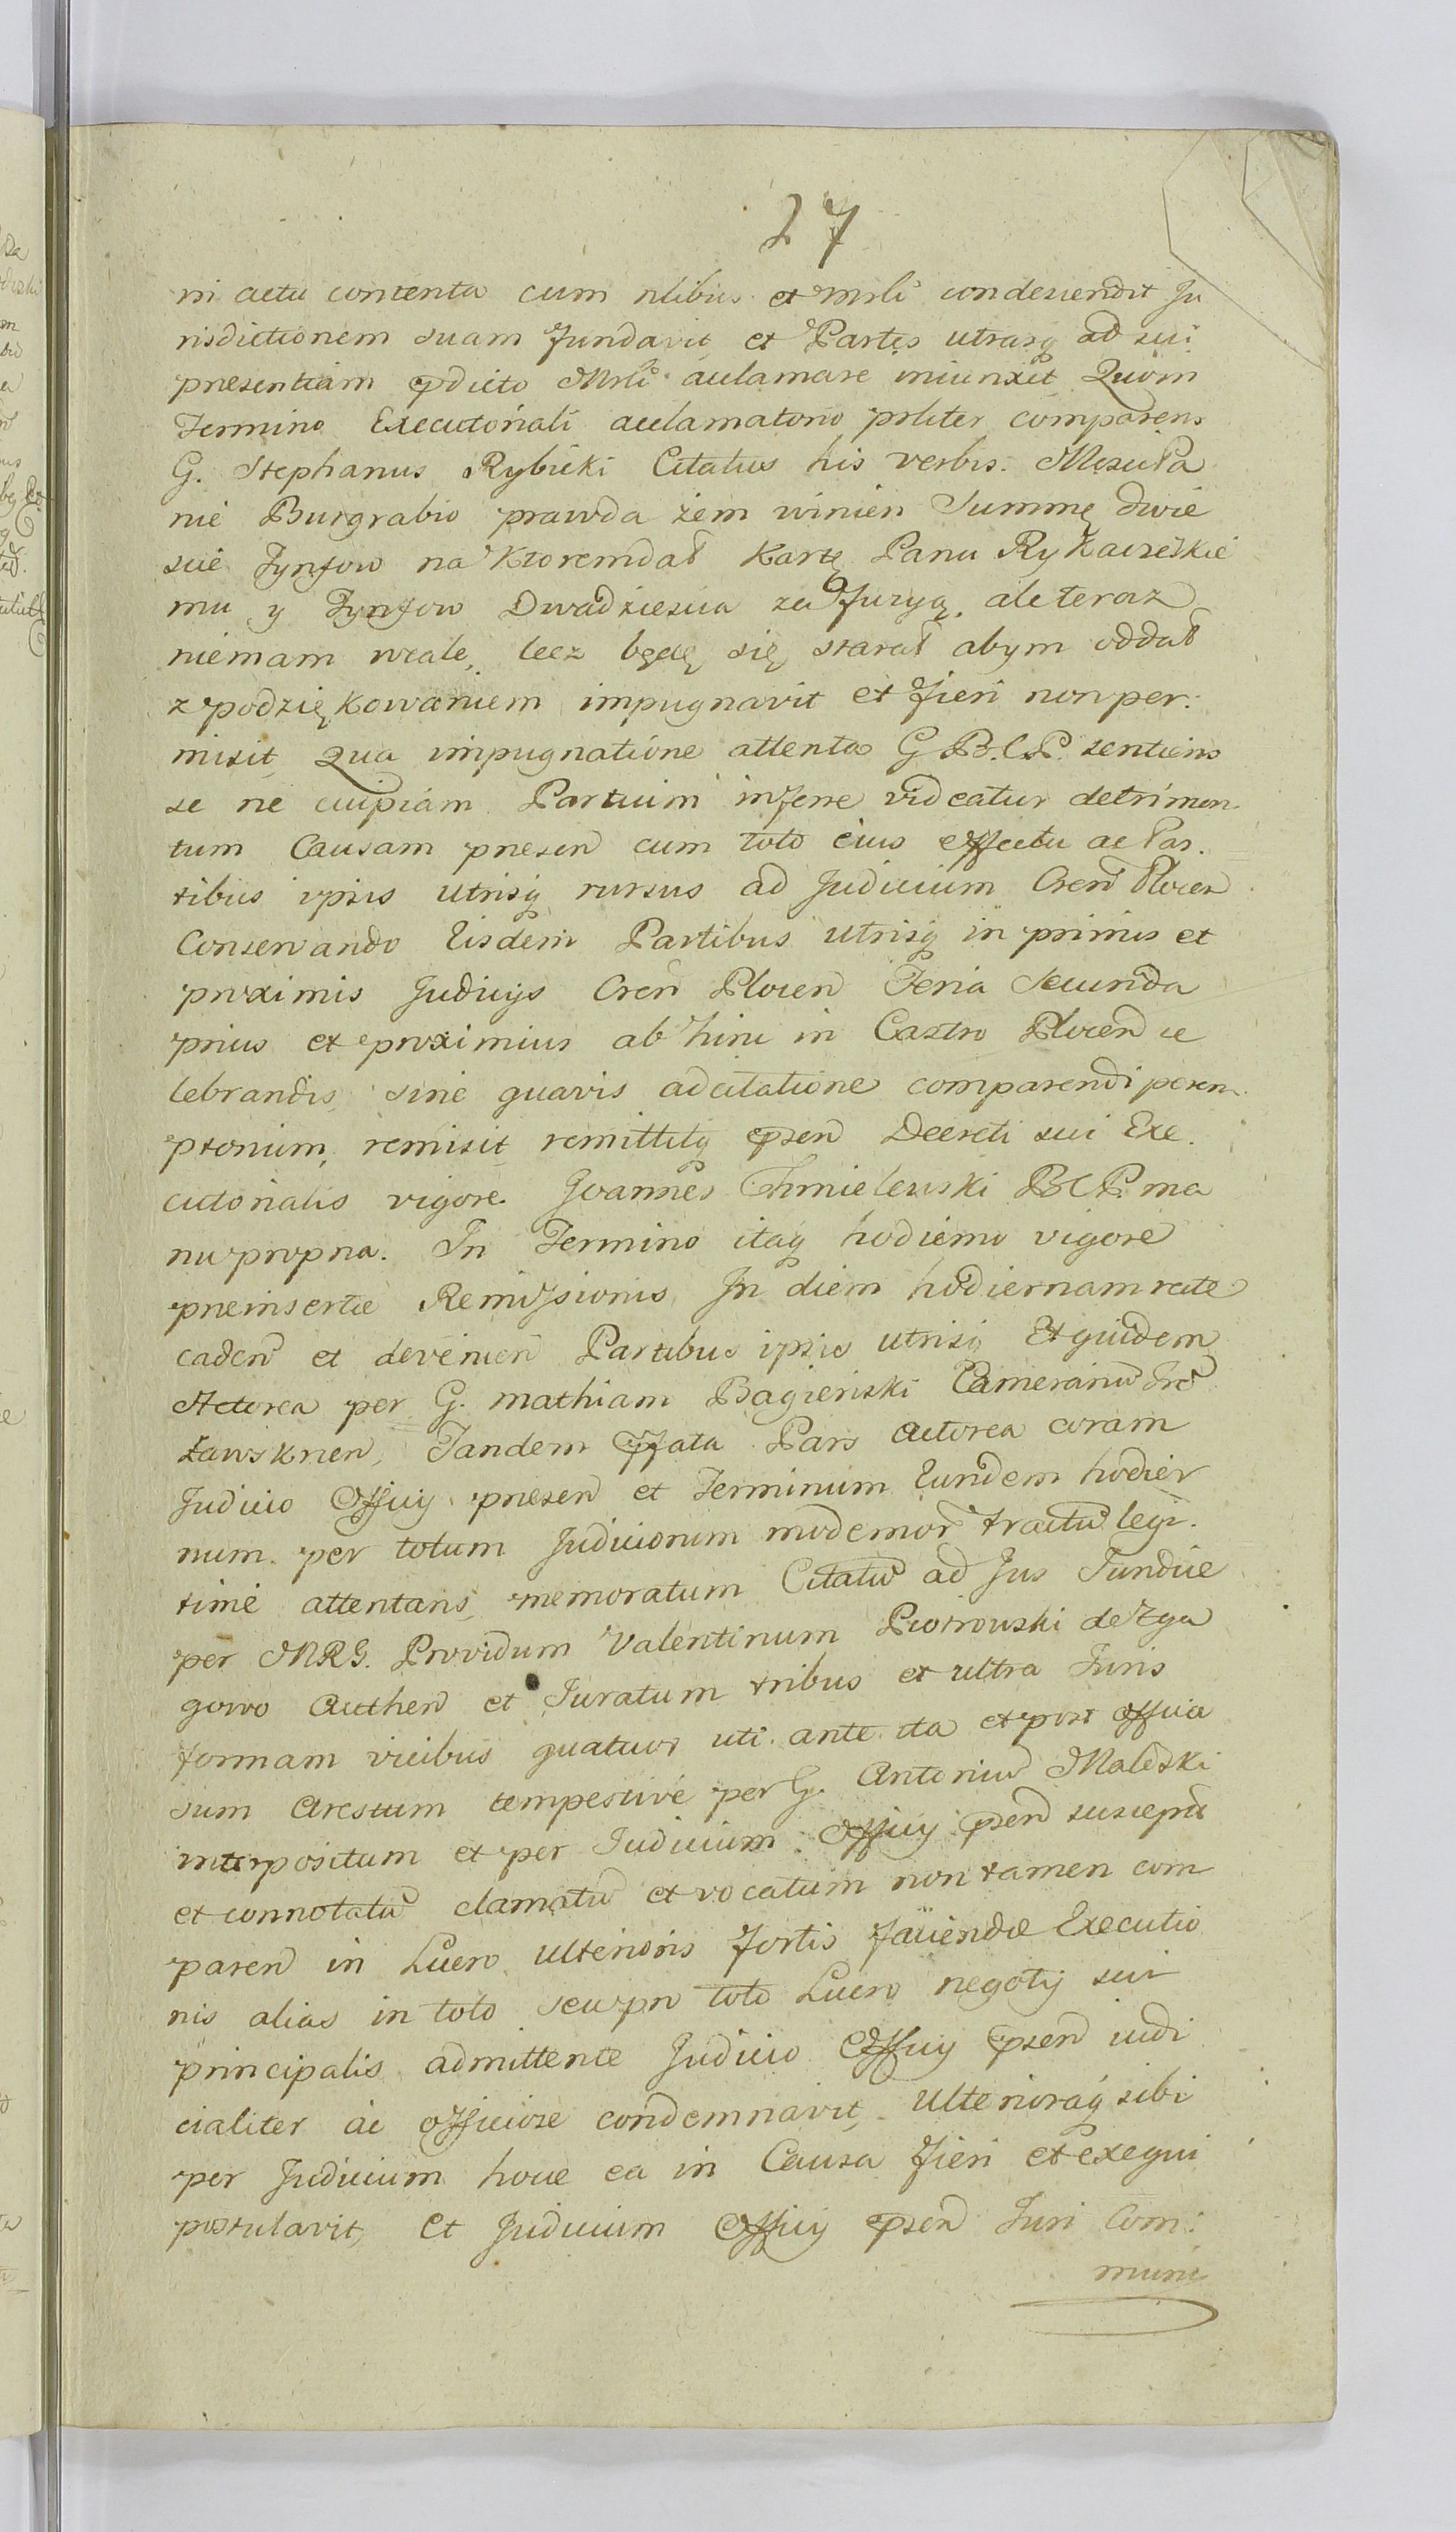 27
ni actu contenta cum nlibus et Mrli condescendit Ju
risdictionem suam fundavit et Partes utrasq ad sui
presentiam pdicto Mrli aclamare iniunxit Quom
Termino Executoriali acclamatorio prliter comparens
G. Stephanus Rybicki Citatus his verbis. Mości Pa
nie Burgrabio prawda żem winien Summę dwie
scie Tynfow na Ktoremdał Kartę Panu Rykaczeskie
mu y Tynfow Dwadziescia za Furyą, ale teraz
niemam wcale, lecz będę się starał abym oddał
z podziękowaniem impugnavit et fieri non per:
misit, Qua impugnatione attenta G B.C.P. sentiens
se ne cuipiam Partium inferre videatur detrimen
tum Causam presen cum toto eius effectu ac Par.
tibus ipsis utrisq rursus ad Judicium Cren Plocen
Conservando Eisdem Partibus utrisq in primis et
proximis Judicijs Cren Plocen Feria Secunda
prius et proximius ab hinc in Castro Plocen ce
lebrandis sine quavis adcitatione comparendi perem
ptorium, remisit remittitq psen Decreti sui Exe.
cutorialis vigore. Joannes Chmielewski BCP. ma
nu propria. In Termino itaq hodierno vigore
preinsertæ Remissionis In diem hodiernam recte
caden et devenien Partibus ipsis utrisq Et quidem
Actorea per G. Mathiam Bagieński Camerariu Tre
Zawskrien, Tandem pfata Pars Actorea coram
Judicio Officij presen et Terminum Eundem hodier
num per totum Judiciorum modernor tractu legi.
time attentans, memoratum Citatu ad Jus Tunduie
per MRG. Providum Valentinum Piotrowski de Zga
gowo Authen et Juratum tribus et ultra Juris
formam vicibus quatuor uti ante ita et post Officio
sum Arestum tempestive per G. Antoniu Maleski
interpositum et per Judicium Officij psen suscept
et connotatu clamatu et vocatum non tamen com
paren in Lucro ulterioris fortis faciendæ Executio
nis alias in toto seu pro toto Lucro negotij sui
principalis admittente Judicio Officij psen iudi
cialiter ac officiose condemnavit, Ulterioraq sibi
per Judicium hocce ea in Causa fieri et exequi
postulavit, Et Judicium Officij psen Juri Com:
muni